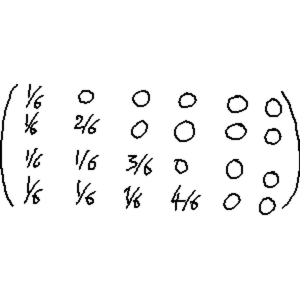 1/6 0 0 0 0 0
1/6 2/6 0 0 0 0
1/6 1/6 3/6 0 0 0
1/6 1/6 1/6 4/6 0 0